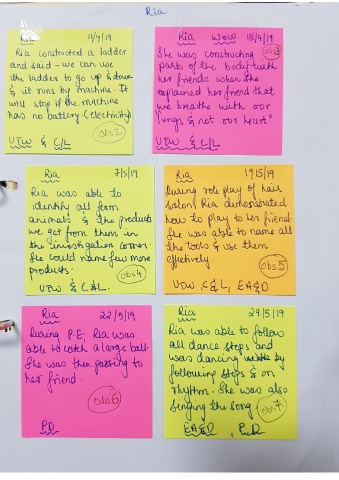 Ria
11/4/19
Ria constructed a ladder
and said - we can use
the ladder to go up & down
& it runs by machine. It
will stop if the machine
has no battery (electricity)
obs2
UTW & C/L
Ria WOW 18/4/19
obs3
She was constructing
parts of the body with
her friends when she
explained her friend that
we breathe with our
"lungs & not our heart"
UTW & C/L
7/5/19
Ria was able to
identify all farm
animals & the products
we get from them in
the investigation corner.
She could name few more
products.
obs4
UTW & C&L.
19/5/19
During role play of hair
salon, Ria demonstrated
how to play to her friend.
She was able to name all
the tools & use them
effectively.
obs5
UTW, C/L, EA&D
Ria 22/5/19
During P.E; Ria was
able to catch a large ball.
She was then passing to
her friend.
obs6
PD
Ria 29/5/19
Ria was able to follow
all dance steps and
was dancing by
following steps & on
rhythm. She was also
singing the song.
obs7
EA&D, PD